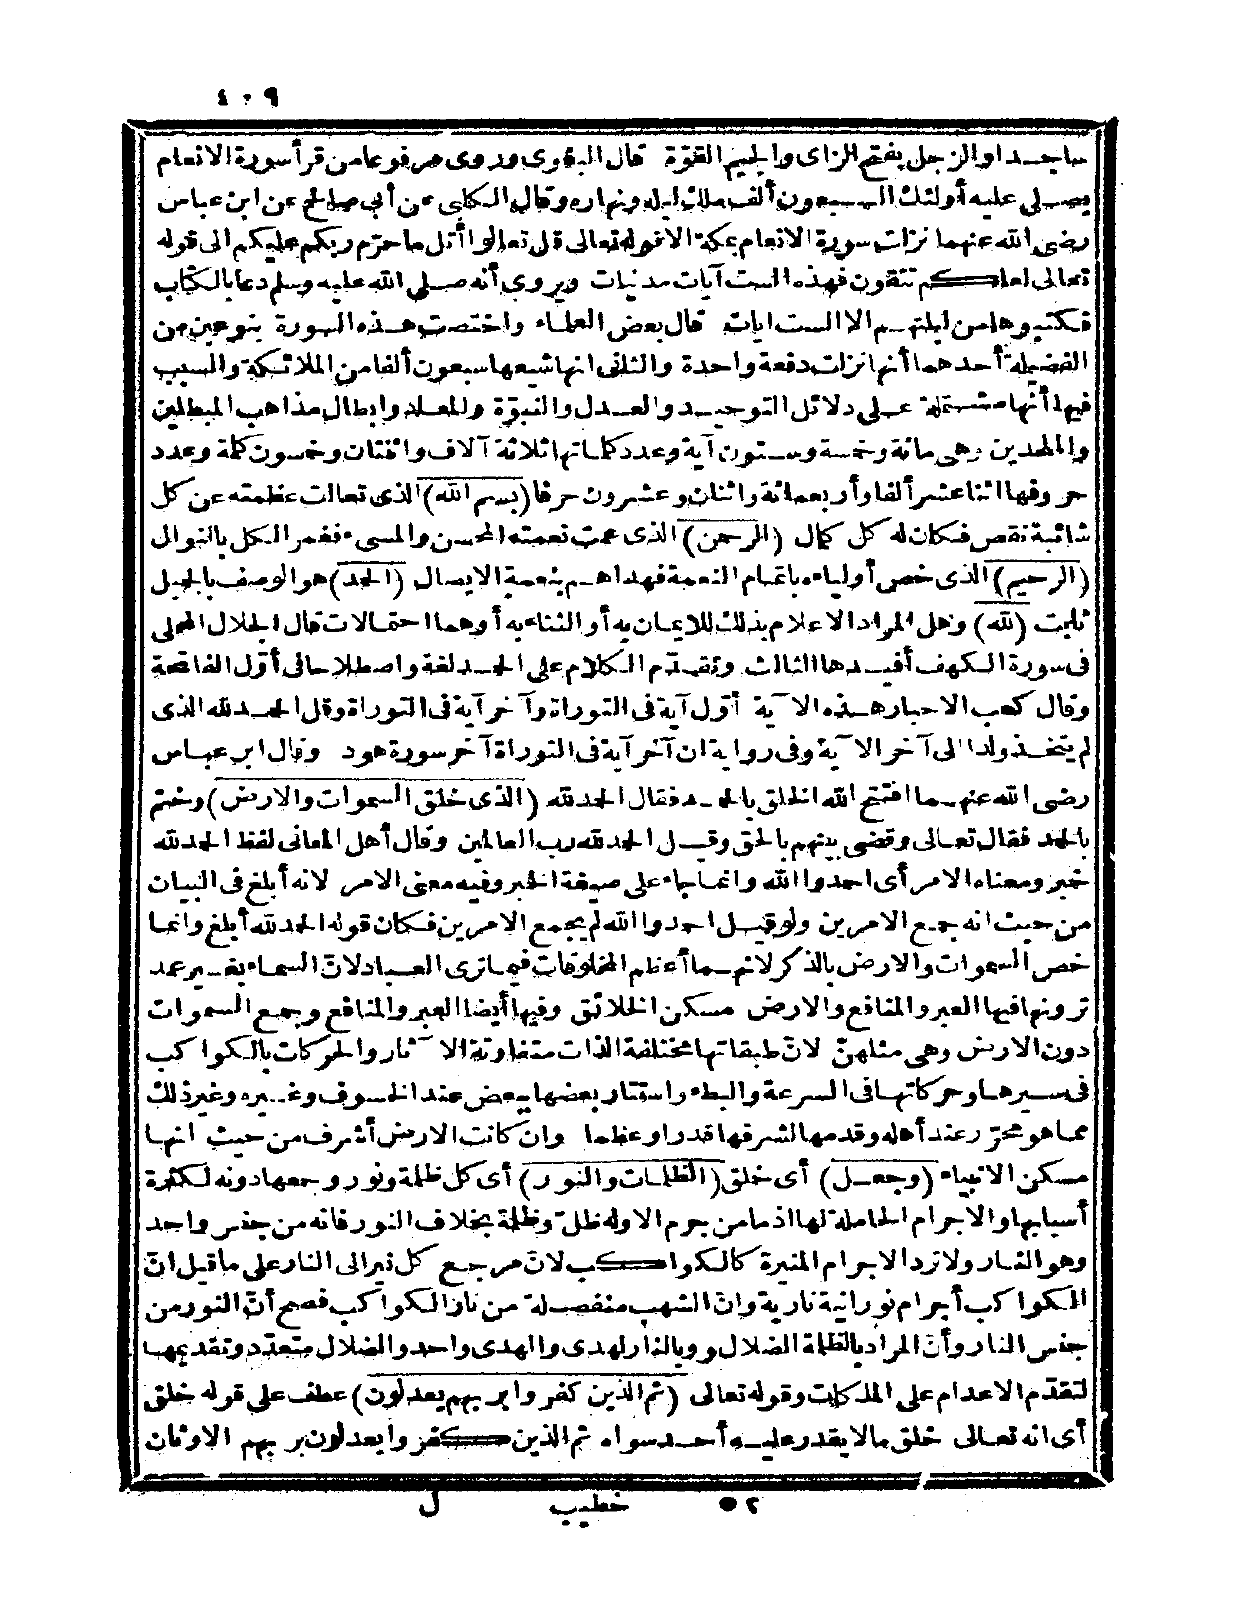 ٤٠٩
ساجدا والزجل بفتح الزاى والجيم القوة قال البغوى وروى مرفوعا من قرأ سورة الانعام
يصلى عليه أولئك السبعون ألف ملك ليله ونهاره وقال الكلبى عن أبى صالح عن ابن عباس
رضى الله عنهما نزلت سورة الانعام بمكة الا قوله تعالى قل تعالوا أتل ما حرّم ربكم عليكم الى قوله
تعالى لعلكم تتقون فهذه الست آيات مدنيات ويروى أنه صلى الله عليه وسلم دعا بالكتاب
فكتبوها من ليلتهم الا الست ايات قال بعض العلماء واختصت هذه السورة بنوعين من
الفضيلة أحدهما أنها نزلت دفعة واحدة والثانى انها شيعها سبعون ألفا من الملائكة والسبب
فيها أنها مشتملة على دلائل التوحيد والعدل والنبوّة والمعاد وابطال مذاهب المبطلين
والملحدين وهى مائة وخمسة وستون آية وعدد كلماتها ثلاثة آلاف واثنتان وخمسون كلمة وعدد
حروفها اثنا عشر ألفا وأربعمائة واثنان وعشرون حرفا (بسم الله) الذى تعالت عظمته عن كل
شائبة نقص فكان له كل كمال (الرحمن) الذى عمت نعمته المحسن والمسىء فغمر الكل بالنوال
(الرحيم) الذى خص أولياءه باتمام النعمة فهداهم بنعمة الايصال (الحمد) هو الوصف بالجميل
ثابت (لله) وهل المراد الاعلام بذلك للايمان به أو الثناء به أو هما احتمالات قال الجلال المحلى
فى سورة الكهف أفيدها الثالث وتقدّم الكلام على الحمد لغة واصطلاحا فى أوّل الفاتحة
وقال كعب الاحبار هذه الآية أوّل آية فى التوراة وآخر آية فى التوراة وقل الحمد لله الذى
لم يتخذ ولدا الى آخر الآية وفى رواية ان آخر آية فى التوراة آخر سورة هود وقال ابن عباس
رضى الله عنهما افتتح الله الخلق بالحمد فقال الحمد لله (الذى خلق السموات والارض) وختم
بالحمد فقال تعالى وقضى بينهم بالحق وقيل الحمد لله رب العالمين وقال أهل المعانى لفظ الحمد لله
خبر ومعناه الامر أى احمدوا الله وانما جاء على صيغة الخبر وفيه معنى الامر لانه أبلغ فى البيان
من حيث انه جمع الامرين ولو قيل احمدوا الله لم يجمع الامرين فكان قوله الحمد لله أبلغ وانما
خص السموات والارض بالذكر لانهما أعظم المخلوقات فيما ترى العباد لانّ السماء بغير عمد
ترونها فيها العبر والمنافع والارض مسكن الخلائق وفيها أيضا العبر والمنافع وجمع السموات
دون الارض وهى مثلهنّ لانّ طبقاتها مختلفة الذات متفاوتة الآثار والحركات بالكواكب
فى سيرها وحركاتها فى السرعة والبطء واستتار بعضها ببعض عند الخسوف وغيره وغير ذلك
مما هو محرّر عند أهله وقدمها لشرفها قدرا وعظما وان كانت الارض أشرف من حيث انها
مسكن الانبياء (وجعل) أى خلق (الظلمات والنور) أى كل ظلمة ونور وجمعها دونه لكثرة
أسبابها والاجرام الحاملة لها اذ ما من جرم الا وله ظلّ وظلمة بخلاف النور فانه من جنس واحد
وهو النار ولا ترد الاجرام المنيرة كالكواكب لانّ مرجع كل نير الى النار على ما قيل انّ
الكواكب أجرام نورانية نارية وانّ الشهب منفصلة من نار الكواكب فصح أنّ النور من
جنس النار وأنّ المراد بالظلمة الضلال وبالنار الهدى والهدى واحد والضلال متعدّد وتقديمها
لتقدّم الاعدام على الملكات وقوله تعالى (ثم الذين كفروا بربهم يعدلون) عطف على قوله خلق
أى انه تعالى خلق ما لا يقدر عليه أحد سواه ثم الذين كفروا يعدلون بربهم الاوثان
٥٢ خطيب ل